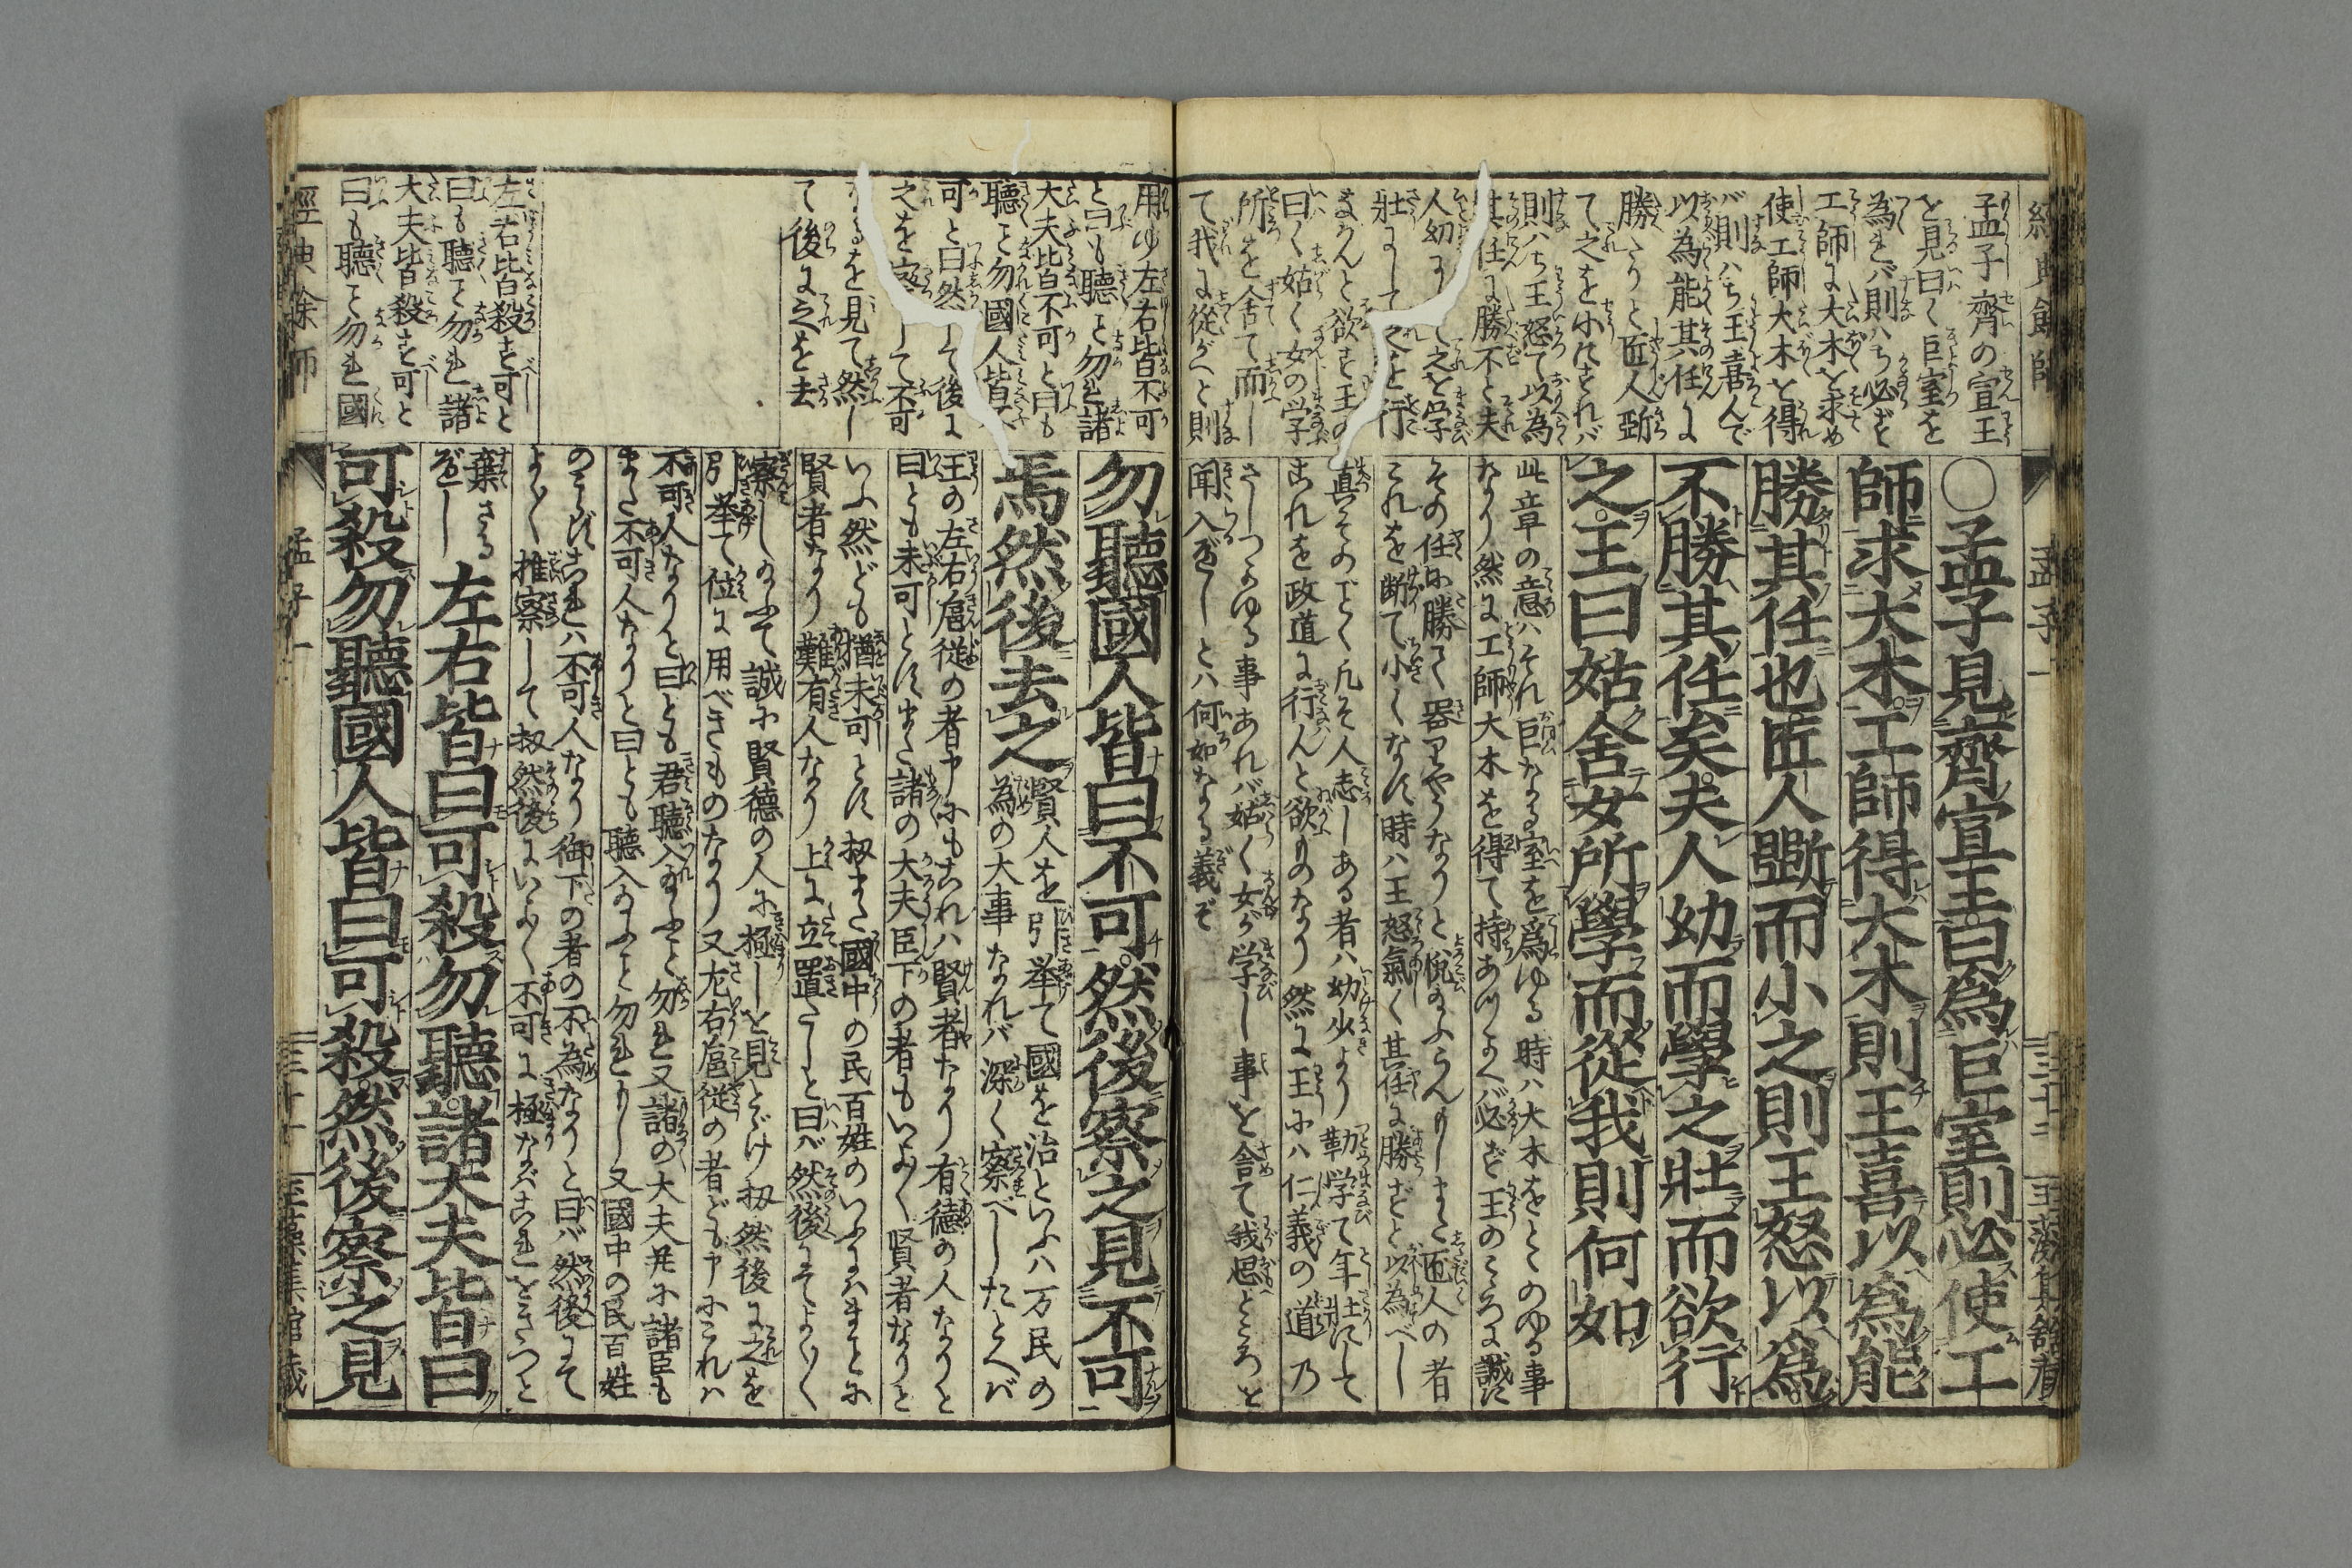 經典餘師
孟子一
三十二
孟子齊の宣王
を見曰く巨室を
為れバ則ハち必ず
工師に大木を求め
使工師大木を得
バ則ハち王喜んで
以為能其任に
勝たりと匠人斲
て之を小にすれバ
則ハち王怒て以為
其任に勝不と夫
壮にして之を行
なんと欲す王の
曰く姑く女の学
所を舎て而し
て我に從がへと則
〇孟子見齊宣王曰爲巨室則必使工
師求大木工師得大木則王喜以爲能
勝其任也匠人斲而小之則王怒以爲
不勝其任矣夫人幼而學之壯而欲行
之王曰姑舍女所學而從我則何如
此章の意ハそれ巨なる室を爲ゆる時ハ大木をとゝのゆる事
なり然に工師大木を得て持あつまへバ必ず王のこゝろに誠に
これを断て小くなす時ハ王怒氣く其任に勝ずと以為べし
眞そのごく凡そ人志しある者ハ幼少より勤学て年壮にして
これを政道に行んと欲ものなり然に王にハ仁義の道乃
さしつかゆる事あれバ姑く女が学し事を舍て我思ところを
聞入べしとハ何如なる義ぞ
用ゆ左右皆不可
と曰も聽こと勿れ諸
大夫皆不可と曰も
聽こと勿國人皆不
可と曰然して後に
之を察して不可
なるを見て然し
て後に之を去
左右皆殺す可と
曰も聽こと勿れ諸
大夫皆殺す可と
曰も聽こと勿れ國
勿聽國人皆曰不可然後察之見不可
焉然後去之
賢人を引挙て國を治といふハ万民の
為の大事なれバ深く察べしたとへバ
王の左右扈従の者中にもこれハ賢者なり有德の人なりと
曰とも未可とす又諸の大夫臣下の者もいよく賢者なりと
いふ然ども猶未可とす扨また國中の民百姓のいふにハまことに
賢者なり難有人なり上に立置たしと曰バ然後にそよくく
察しのふて誠に賢德の人に極しを見とゞけ扨然後に之を
引挙て位に用べきものなり又左右扈従の者ども中にこれハ
不可人なりと曰とも君聽入給ふこと勿れ又諸の大夫并に諸臣も
また不可人なりと曰とも聽入給ふこと勿れもし又國中の民百姓
のこらずこれハ不可人なり御下の者の不為なりと曰バ然後にて
よく推察して扨然後にいよく不可に極なバこれをきつと
棄さる
べし
左右皆曰可殺勿聽諸大夫皆曰
可殺勿聽國人皆曰可殺然後察之見
經典餘師
孟子一
三十二